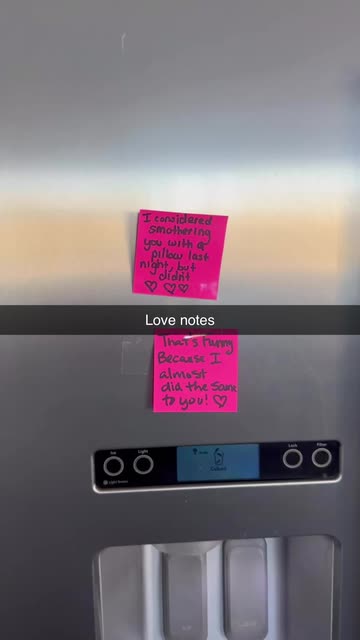 I considered
smothering
you with a
pillow last
night, but
didn't
♡ ♡ ♡
Love notes
That's Funny
Because I
almost
did the same
to you! ♡
Light
Lock
Filter
Cubed